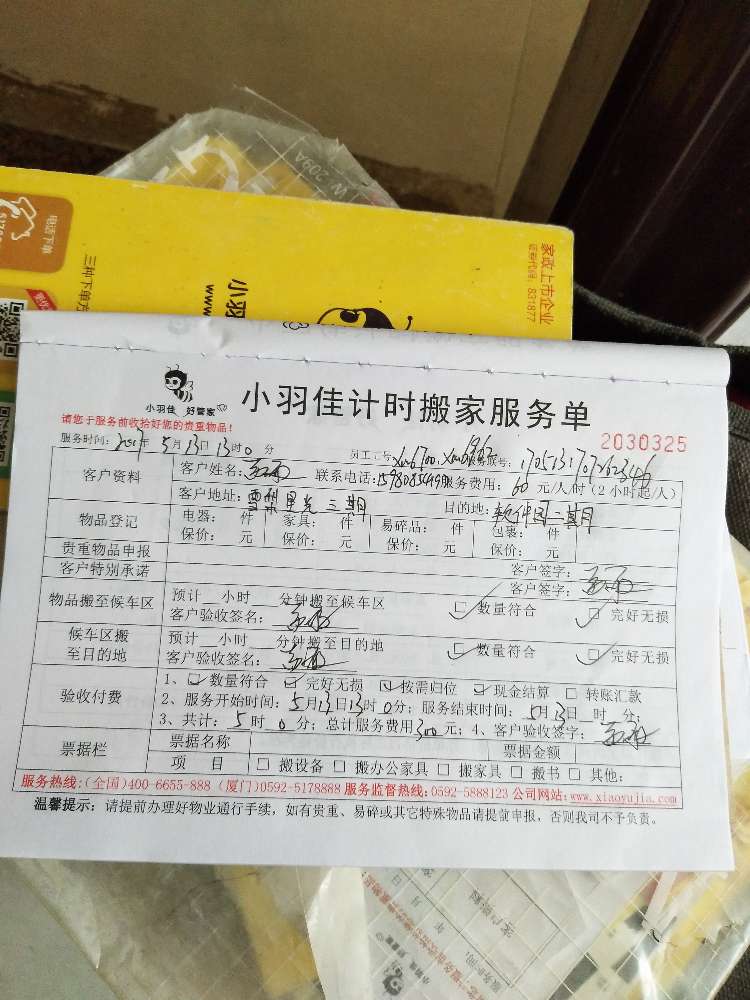 W 209A
电话下单
三种下单方
小羽
www.
家政上市企业
证券代码：831877
小羽佳 好管家
小羽佳计时搬家服务单
请您于服务前收拾好您的贵重物品！
2030325
服务时间：2017年 5月13日13时0分 员工工号：
客户资料
客户姓名： 联系电话： 服务费用：60元/人/时（2小时起/人）
客户地址：雪梨星光二期 目的地：软件园二期
物品登记
电器： 件 家具： 件 易碎品： 件 包裹： 件
保价： 元 保价： 元 保价： 元 保价： 元
贵重物品申报
客户签字：
客户特别承诺
客户签字：
物品搬至候车区
预计 小时 分钟搬至候车区
客户验收签名： 数量符合 完好无损
候车区搬至目的地
预计 小时 分钟搬至目的地
客户验收签名： 数量符合 完好无损
验收付费
1、数量符合 完好无损 按需归位 现金结算 转账汇款
2、服务开始时间：5月13日13时0分；服务结束时间：5月13日 时 分；
3、共计：5时0分；总计服务费用300元；4、客户验收签字：
票据栏
票据名称 票据金额
项 目 搬设备 搬办公家具 搬家具 搬书 其他：
服务热线：(全国)400-6655-888 (厦门)0592-5178888 服务监督热线：0592-5888123 公司网站：www.xiaoyujia.com
温馨提示：请提前办理好物业通行手续，如有贵重、易碎或其它特殊物品请提前申报，否则我司不予负责。